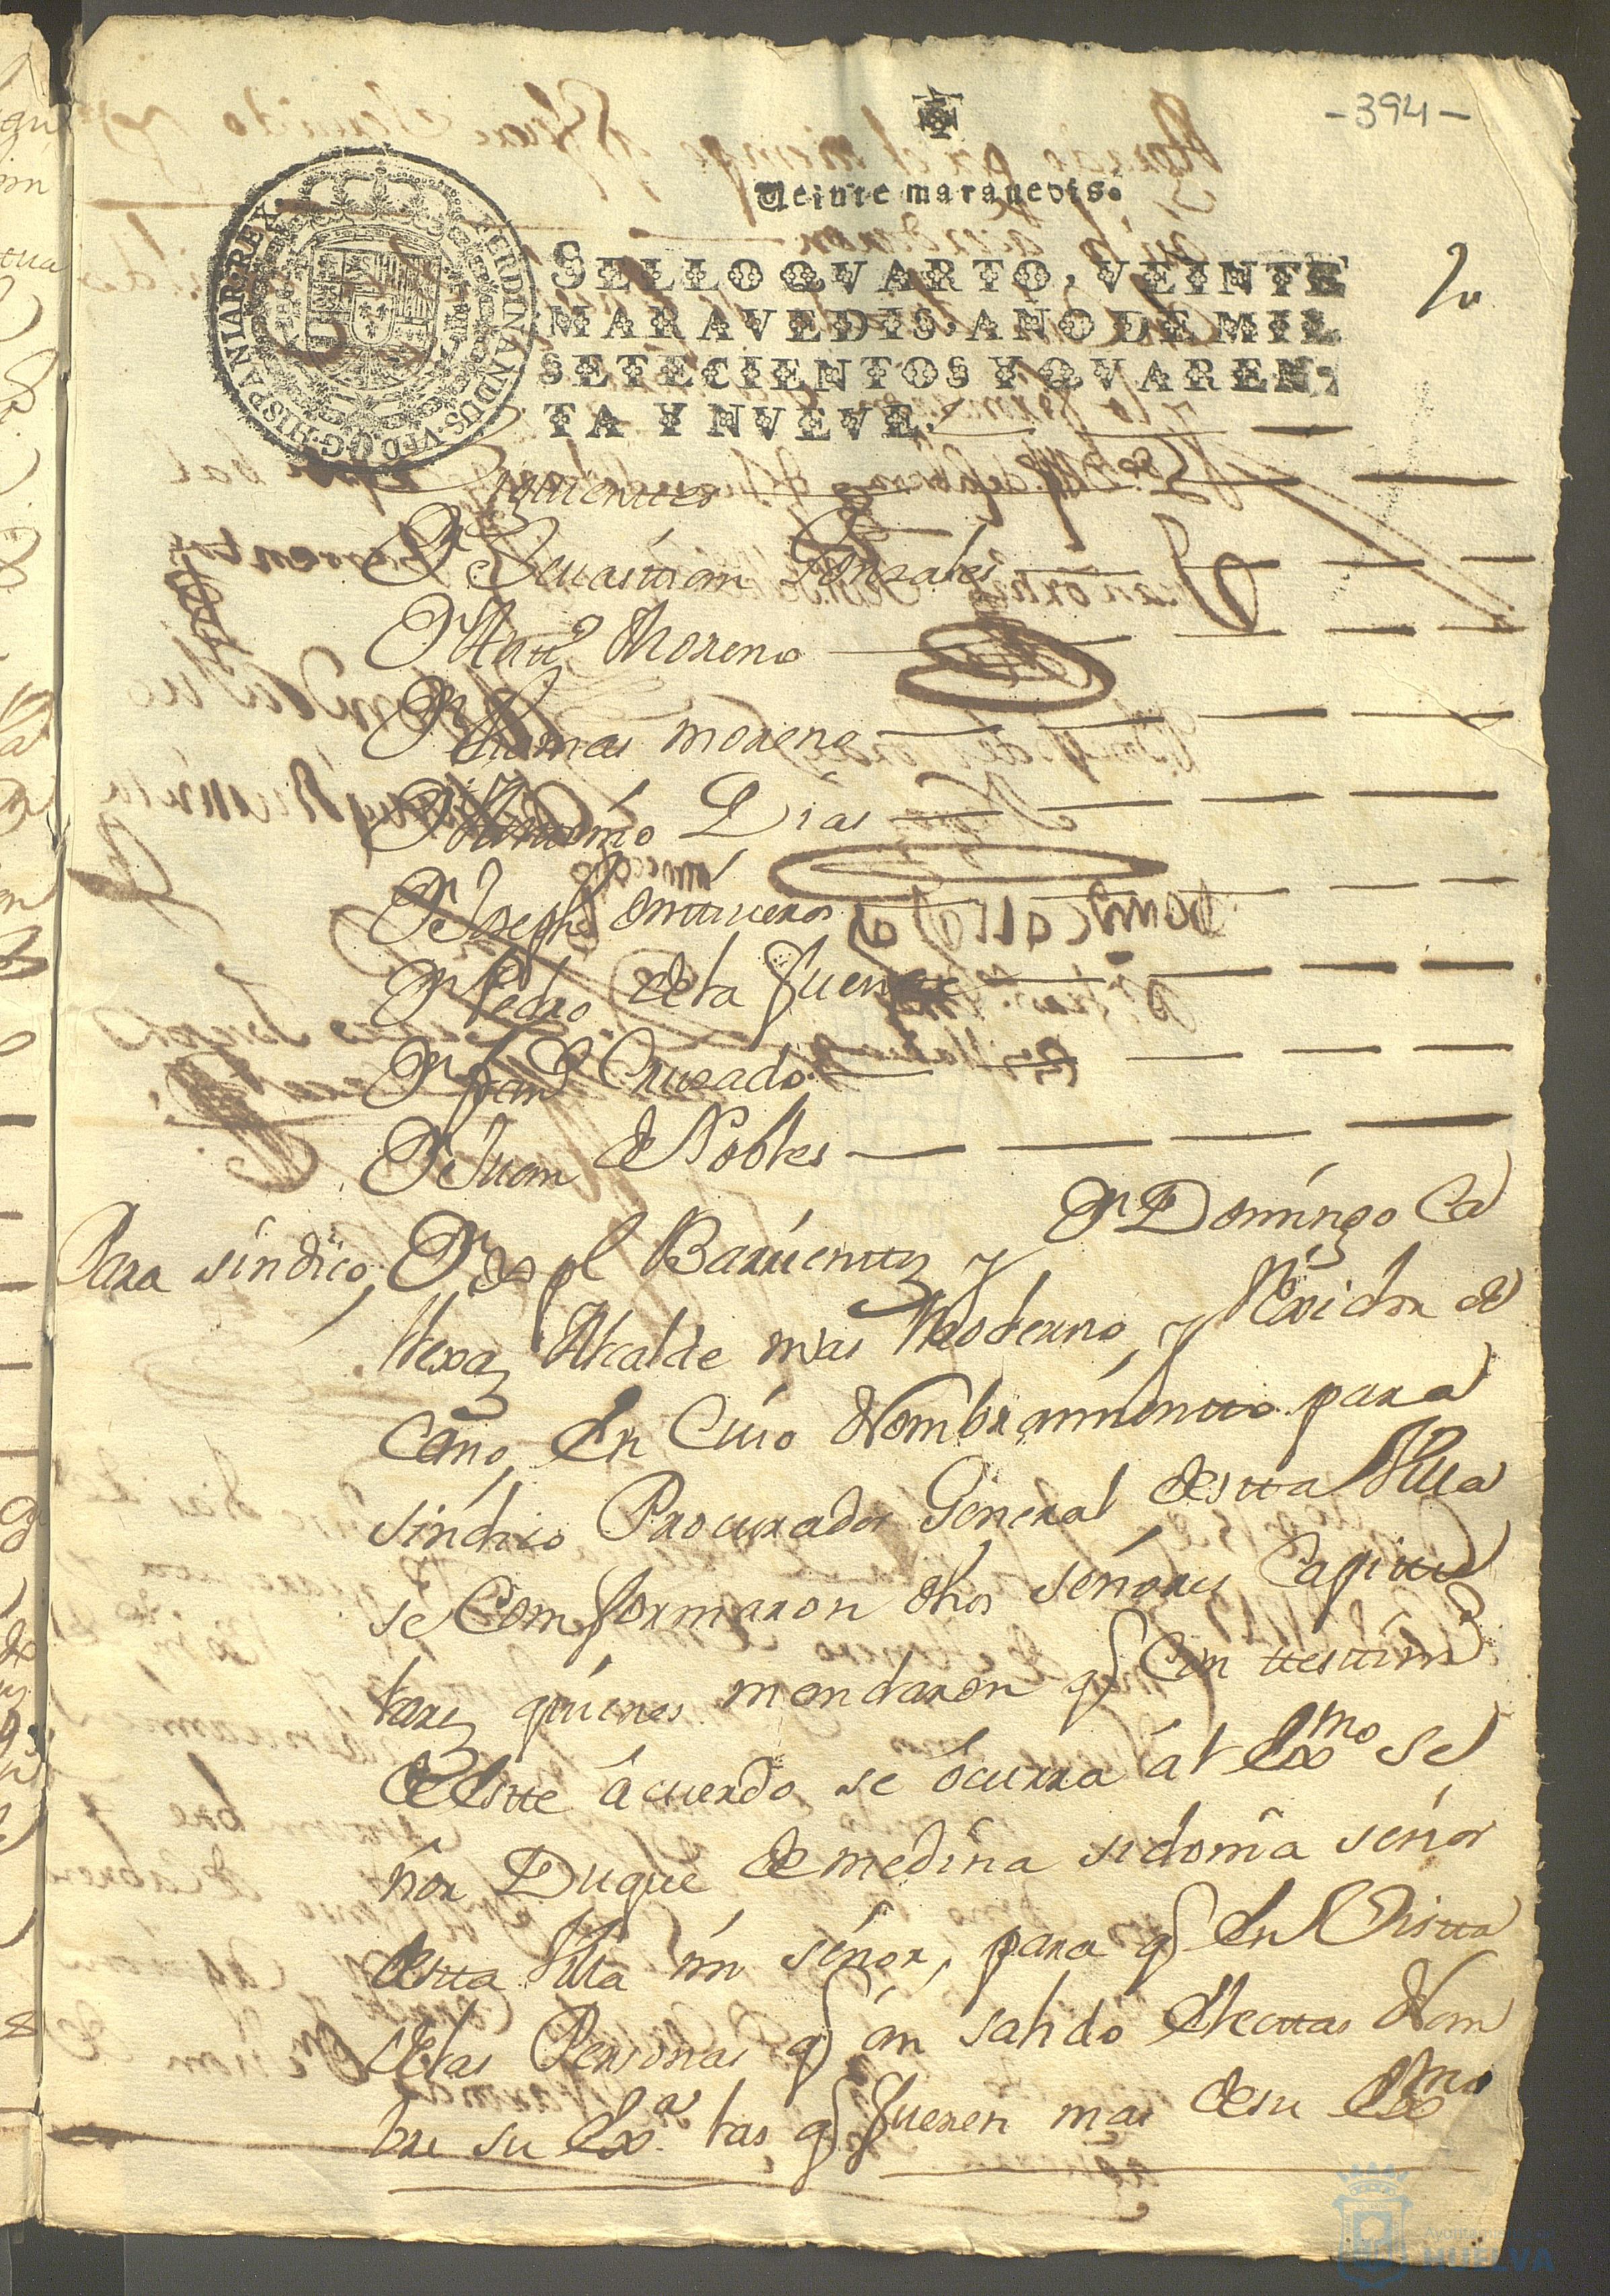 -394-
Veinte maravedis.
FERDINANDUS·VI·D·G·HISPANIAR·REX
SELLO QVARTO, VEINTE
MARAVEDIS, AÑO DE MIL
SETECIENTOS Y QVAREN-
TA Y NVEVE.
Siguientes
Dn Sevastian Gonzales
Dn Anto Moreno
Dn Thomas moreno
Dn Antonio Dias
Dn Joseph Ontiveros
Dn Pedro de la Fuente
Dn Franco Cruzado
Dn Juan de Robles
Para sindico, Dn Joseph Barrientos y Dn Domingo Ca
llexas Alcalde mas Moderno, y Rexidor de
cano, En Cuio Nombramiento para
sindico Procurador General destta Villa
se Comformaron dhos señores Capittu
lares quienes mandaron q Con ttesttimo
de Estte acuerdo se ocurra al Exmo Se
ñor Duque de medina sidonia señor
destta Villa mi señor, para q En Vistta
delas Personas q an salido Electtas Nom
bre su Exa las q fueren mas desu Exmo
Ayuntamiento de
HUELVA